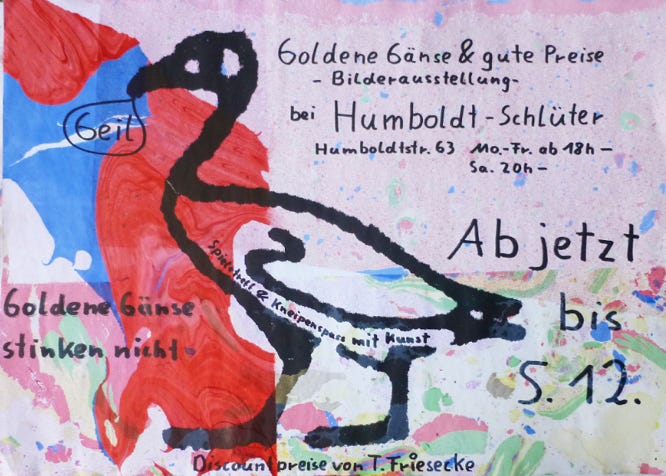 Goldene Gänse & gute Preise
- Bilderausstellung-
bei Humboldt-Schlüter
Humboldtstr. 63 Mo.-Fr. ab 18h-
Sa. 20h-
Geil
Ab jetzt
bis
5.12.
Goldene Gänse
stinken nicht.
& Kneipenspass mit Kunst
Discountpreise von T. Friesecke